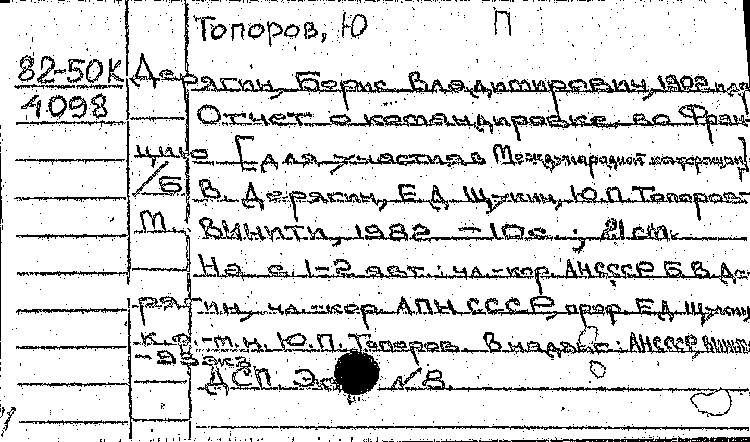 Топоров, Ю П
82-50К Дерягин, Борис Владимирович, 1902
4098 Отчет о командировке во Фран-
цию [для участия в Международной конференции]
/ Б. В. Дерягин, Е Д Щукин, Ю.П. Топоров.
М ВИНИТИ, 1982 - 10с. ; 21 см.
На с. 1-2 авт.: чл.-кор. АН СССР Б. В. Де-
рягин, чл.-кор. АПН СССР, проф. Е.Д. Щукин,
к. -т. н. Ю.П. Топоров. В надзаг: АН СССР, ВИНИТИ
ДСП Эк № 8.